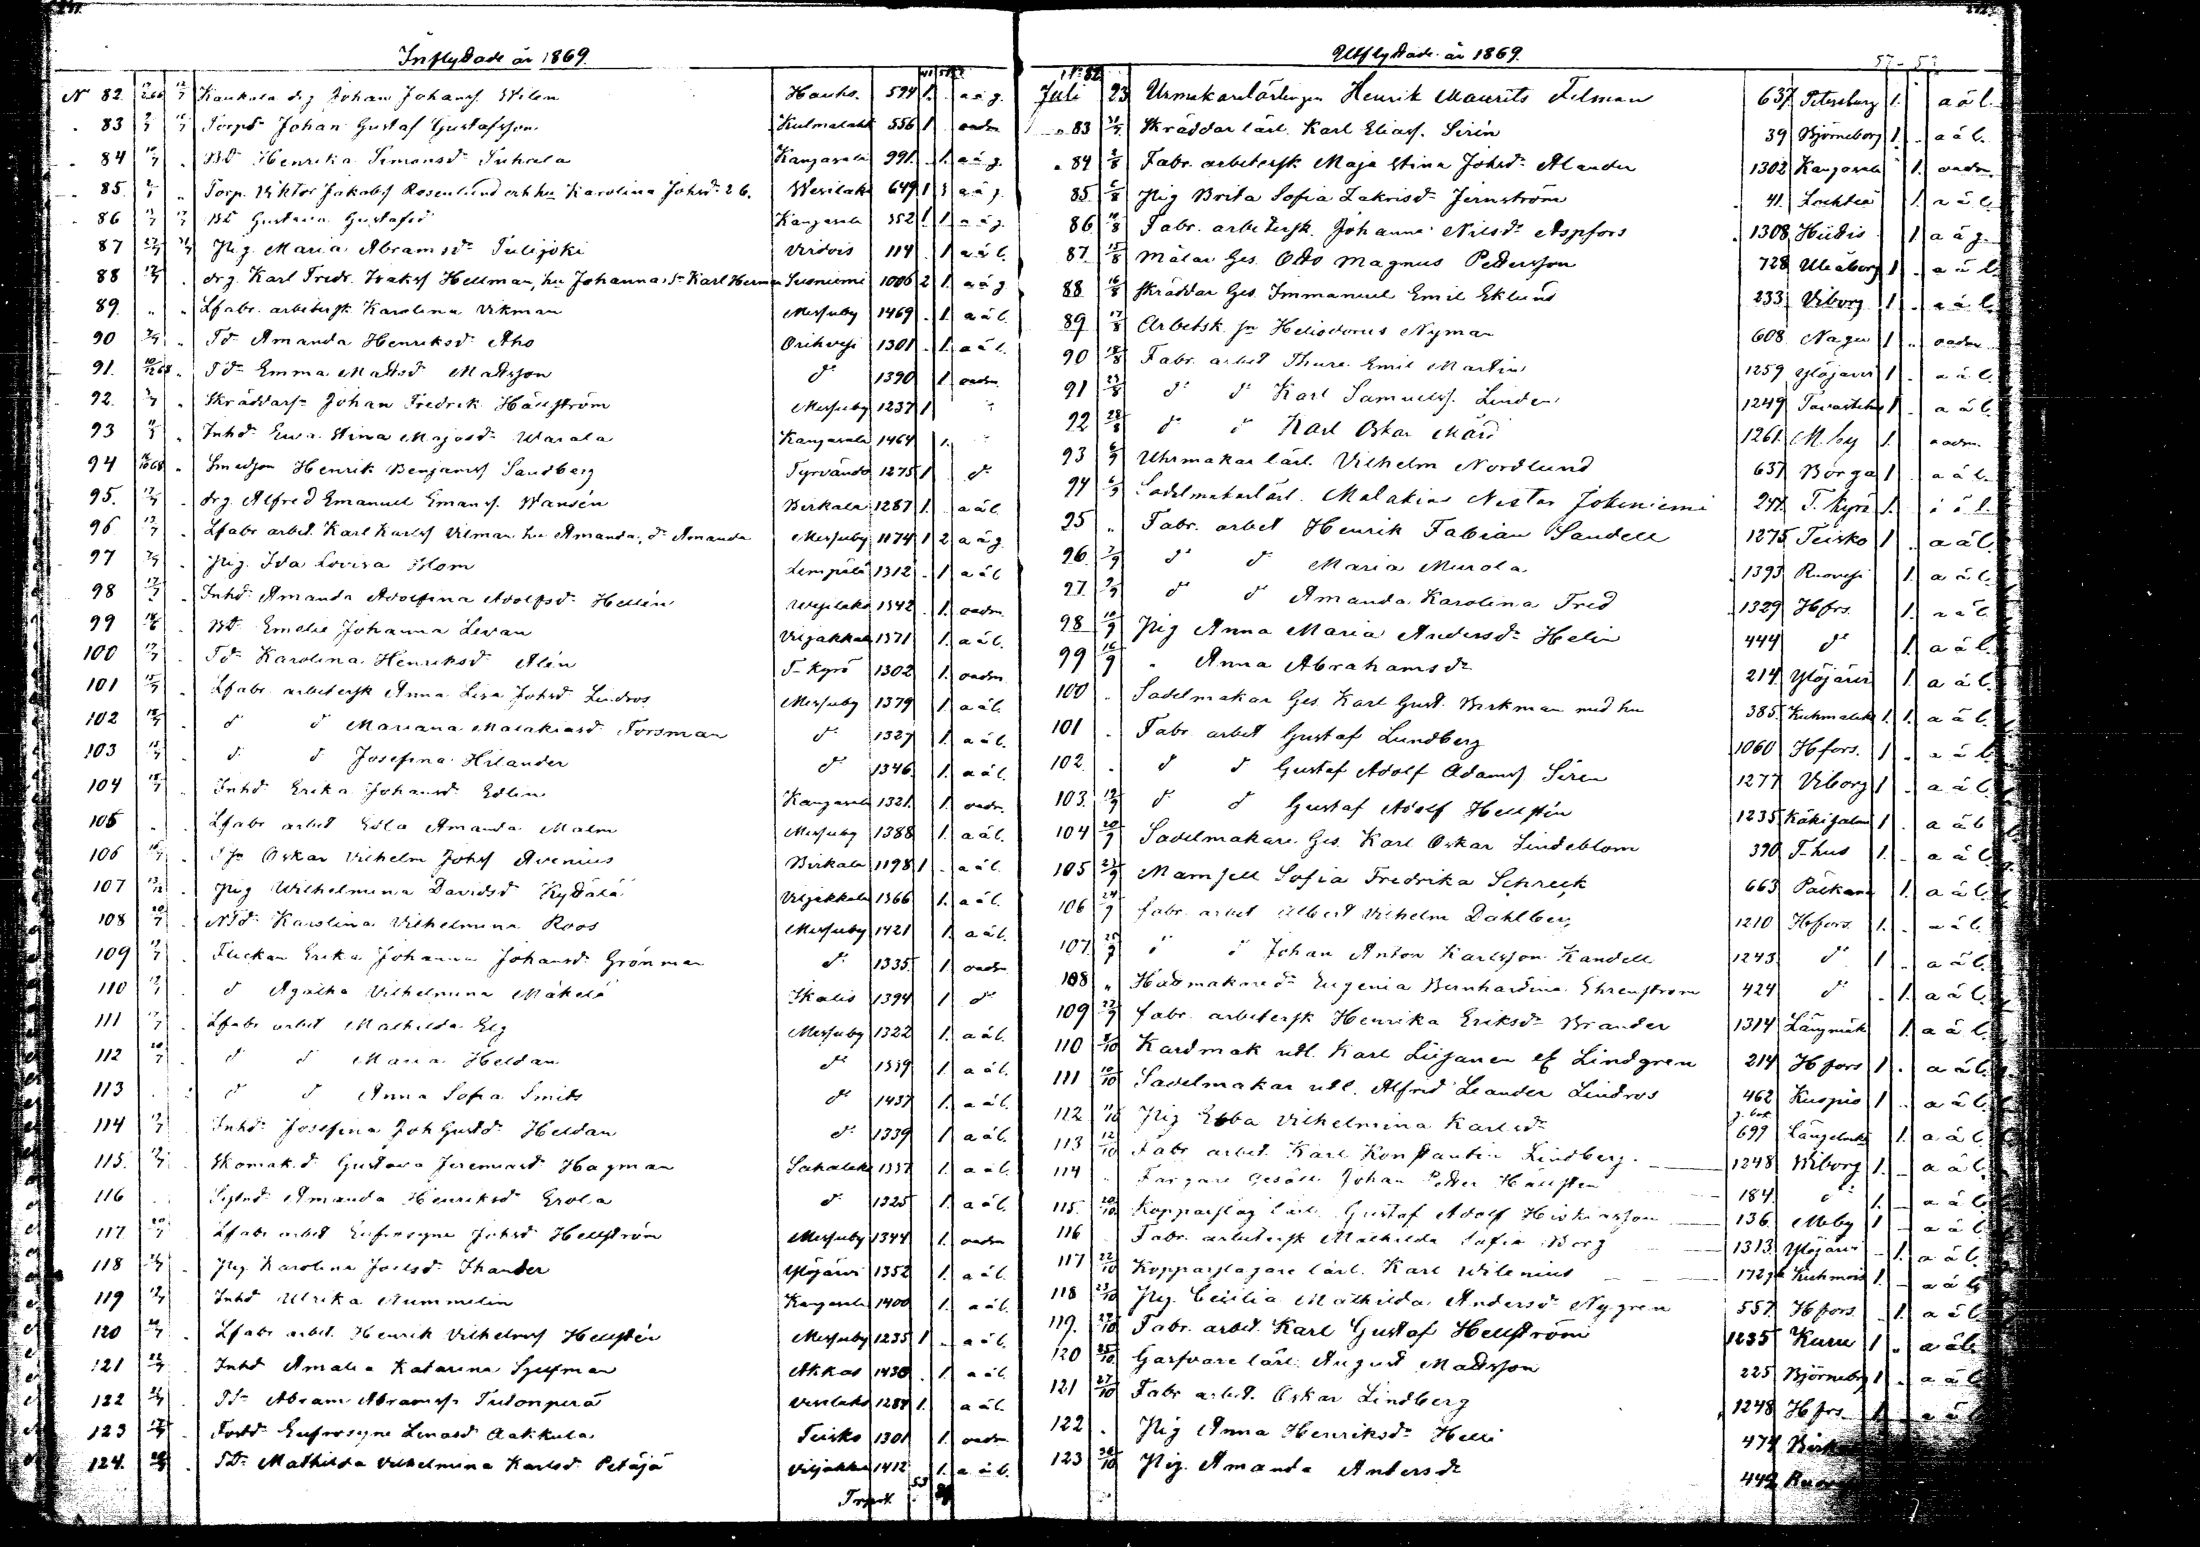 Inflyttade år 1869.
N 82 Kaukola drg Johan Johanss. Wilen Hauho. 594 1. a ä g.
83 Torpd Johan Gustaf Gustafsson Kulmalaks 556 1 oadm
84 Bd Henrika Simonsd Tuhala Kangasala 991. 1. a ä g.
85 Torp. Viktor Jakobss Rosenlund och hu Karolina Johsd 2 b. Wesilaks 649 1 3 a ä g.
86 Bd Gustava Gustafsd Kangasala 352 1 1 a ä g.
87 Pig. Maria Abramsd Tulijoki Virdois 114 1 a ä l.
88 drg Karl Fredr. Isakss Hellman, hu Johanna, Sn Karl Herman Suoniemi 1006 2 1. a ä g
89. Lfabr. arbetersk Karolina Vikman Messuby 1469 1 a ä l.
90 Td Amanda Henriksd Aho Orihvesi 1301 1. a ä l.
91. Td Emma Mattsd Mattsson d 1390 1 oadm
92. Skräddars Johan Fredrik Hällström Messuby 1237 1
93 Inhd Eva Stina Majasd Warala Kangasala 1464 1.
94 Smedson Henrik Benjamss Sandberg Tyrvändö 1275 1 d
95. drg Alfred Emanuel Emans. Wansén Birkala 1287 1. a ä l.
96 Lfabr arbet. Karl Karlss Vilman hu Amanda, d Amanda Messuby 1174 1 2 a ä g.
97 Pig. Ida Lovisa Blom Lempälä 1312 1 a ä l
98 Inhd Amanda Adolfina Adolfsd Hellén Wesilaks 1342 1. oadm
99 Bd Emelie Johanna Levan Viljakkala 1371 1. a ä l.
100 Td Karolina Henriksd Alén T-Kyrö 1302 1. oadm
101 Lfabr arbetersk Anna Lisa Johsd Lindros Messuby 1379 1. a ä l.
102 d d Mariana Malakiasd Forsman d 1327 1. a ä l.
103 d d Josefina Hilander d 1346 1. a ä l.
104 Inhd Erika Johansd Edlin Kangasala 1321. 1. oadm
105 Lfabr arbet Edla Amanda Malm Messuby 1388 1. a ä l.
106 Oskar Vilhelm Johss Avenius Birkala 1198 1 a ä l.
107 Pig Wilhelmina Davidsd Kyttälä Viljakkala 1366 1. a ä l.
108 NTd Karolina Vilhelmina Roos Messuby 1421 1. a ä l.
109 Flickan Erika Johanna Johansd Grönman d 1335. 1 oadm
110 d Agatha Vilhelmina Mäkelä Ikalis 1394 1 d
111 Lfabr arbet Mathilda Elg Messuby 1322 1. a ä l.
112 d d Maria Heldan d 1339 1. a ä l.
113 d d Anna Sofia Smits d 1437 1. a ä l.
114 Inhd Josefina Joh Gustd Heldan d 1339 1 a ä l.
115. Skomak. d Gustava Jeremiasd Hagman Sahalaks 1337 1. a ä l.
116 Amanda Henriksd Erola d 1325 1. a ä l.
117 Lfabr arbet Eufrosyne Johsd Hellström Messuby 1344 1. oadm
118 Pig Karolina Joelsd Ihander Ylöjärvi 1352 1. a ä l.
119 Inhd Ulrika Nummelin Kangasala 1400 1. a ä l.
120 Lfabr arbet. Henrik Vilhelmss Hellstén Messuby 1235 1 a ä l.
121 Inhd Amalia Katarina Akkas 1430 1. a ä l.
122 Abram Abramss Vesilaks 1284 1. a ä l.
123 Eufrosyne Linasd Aakkula Teisko 1301 1. oadm
124. Td Mathilda Vilhelmina Karlsd Petäjä Viljakka 1412 1. a ä l.
Utflyttade år 1869.
Juli 23 Urmakarelärlingen Henrik Maurits Felman 637 Petersburg 1. a ä l.
83 Skräddar lärl. Karl Eliass. Sirén 39 Björneborg 1 a ä l.
84 Fabr. arbetersk Maja Stina Johsd Alander 1302 Kangasala 1. oadm.
85. Pig Brita Sofia Zakrisd Jernström 41. Lochteå 1 a ä l.
86 Fabr. arbetersk. Johanna Nilsd Aspfors 1308 Hiitis 1 a ä g.
87 Målar Ges. Otto Magnus Pettersson 728 Uleåborg 1 a ä l.
88 Skräddar Ges. Immanuel Emil Eklund 233 Viborg 1 a ä l.
89 Arbetsk. sn Heliodorus Nyman 608 Nagu 1 oadm
90 Fabr. arbet Thure Emil Martin 1259 Ylöjärvi 1 a ä l.
91 d d Karl Samuelss. Linden 1249 Tavastehus 1 a ä l.
92 d d Karl Oskar Mård 1261. M.by 1. oadm.
93 Uhrmakar lärl. Vilhelm Nordlund 637 Borgå 1 a ä l.
94 Sadelmakarlärl. Malakias Nestor Jokiniemi 247. T. Kyrö 1. a ä l.
95 Fabr. arbet Henrik Fabian Sandell 1275 Teisko 1 a ä l.
96 d d Maria Murola 1393 Ruovesi 1. a ä l.
97 d d Amanda Karolina Fred 1329 Hfors. 1. a ä l.
98 Pig Anna Maria Andersd Helin 444 d 1. a ä l.
99 Anna Abrahamsd 214 Ylöjärvi 1. a ä l.
100 Sadelmakar Ges. Karl Gust. Birkman med hu 385. Kuhmalaks 1. 1. a ä l.
101 Fabr. arbet Gustaf Lundberg 1060 Hfors. 1. a ä l.
102. d d Gustaf Adolf Adamss Sirén 1277 Viborg 1 a ä l.
103. d d Gustaf Adolf Hellstén 1235 Käkisalmi 1 a ä l
104 Sadelmakare Ges. Karl Oskar Lindeblom 390 T-hus 1. a ä l.
105 Mamsell Sofia Fredrika Schreck 663 Pälkäne 1. a ä l.
106 fabr arbet Albert Vilhelm Dahlberg 1210 Hfors. 1. a ä l.
107. d d Johan Anton Karlsson Kandell 1243 d 1 a ä l.
108 Hattmakare d Eugenia Bernhardina Ehrenström 424 d 1. a ä l.
109 fabr. arbetersk Henrika Eriksd Brander 1314 Längmäk 1. a ä l.
110 Kardmak utl. Karl Lisjanen el Lindgren 214 Hfors 1. a ä l.
111 Sadelmakar utl. Alfred Leander Lindros 462 Kuopio 1 a ä l.
112 Pig Ebba Vilhelmina Karlsd 699 Längelmäki 1. a ä l.
113 Fabr arbet. Karl Konstantin Lindberg. 1248 Wiborg 1. a ä l.
114 Färgare Gesäll Johan Petter Hällsten 184 d 1. a ä l.
115. Kopparslag lärl. Gustaf Adolf Hiskiasson 136. Mby 1 a ä l.
116 Fabr. arbetersk Mathilda Sofia Borg 1313 Ylöjärvi 1. a ä l.
117 Kopparslagare lärl. Karl Wilenius 172 Kuhmois 1. a ä l.
118 Pig. Cecilia Mathilda Andersd Nygren 557 Hfors. 1 a ä l.
119. Fabr. arbet. Karl Gustaf Hellström 1235 Kuru 1 a ä l.
120 Garfvare lärl. August Mattsson 225 Björneborg 1 a ä l.
121 Fabr arbet. Oskar Lindberg 1248 Hfrs. 1 a ä l.
122 Pig Anna Henriksd Helli 474
123 Pig. Amanda Andersd 442